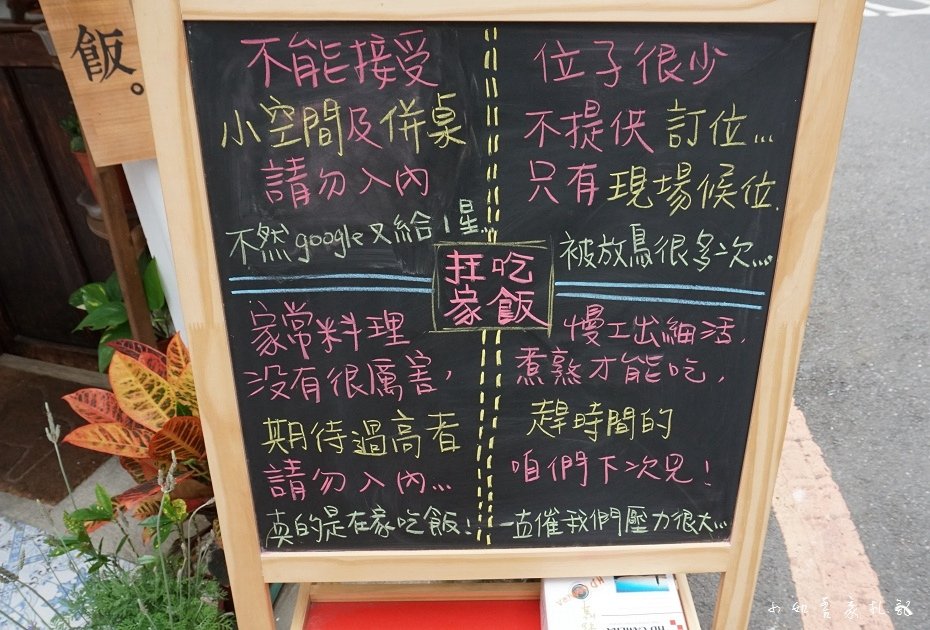 飯。
不能接受
小空間及併桌
請勿入內
不然google又給1星...
位子很少
不提供訂位...
只有現場候位.
被放鳥很多次...
在吃
家飯
家常料理
沒有很厲害,
期待過高者
請勿入內...
真的是在家吃飯!
慢工出細活,
煮熟才能吃,
趕時間的
咱們下次見!
一直催我們壓力很大...